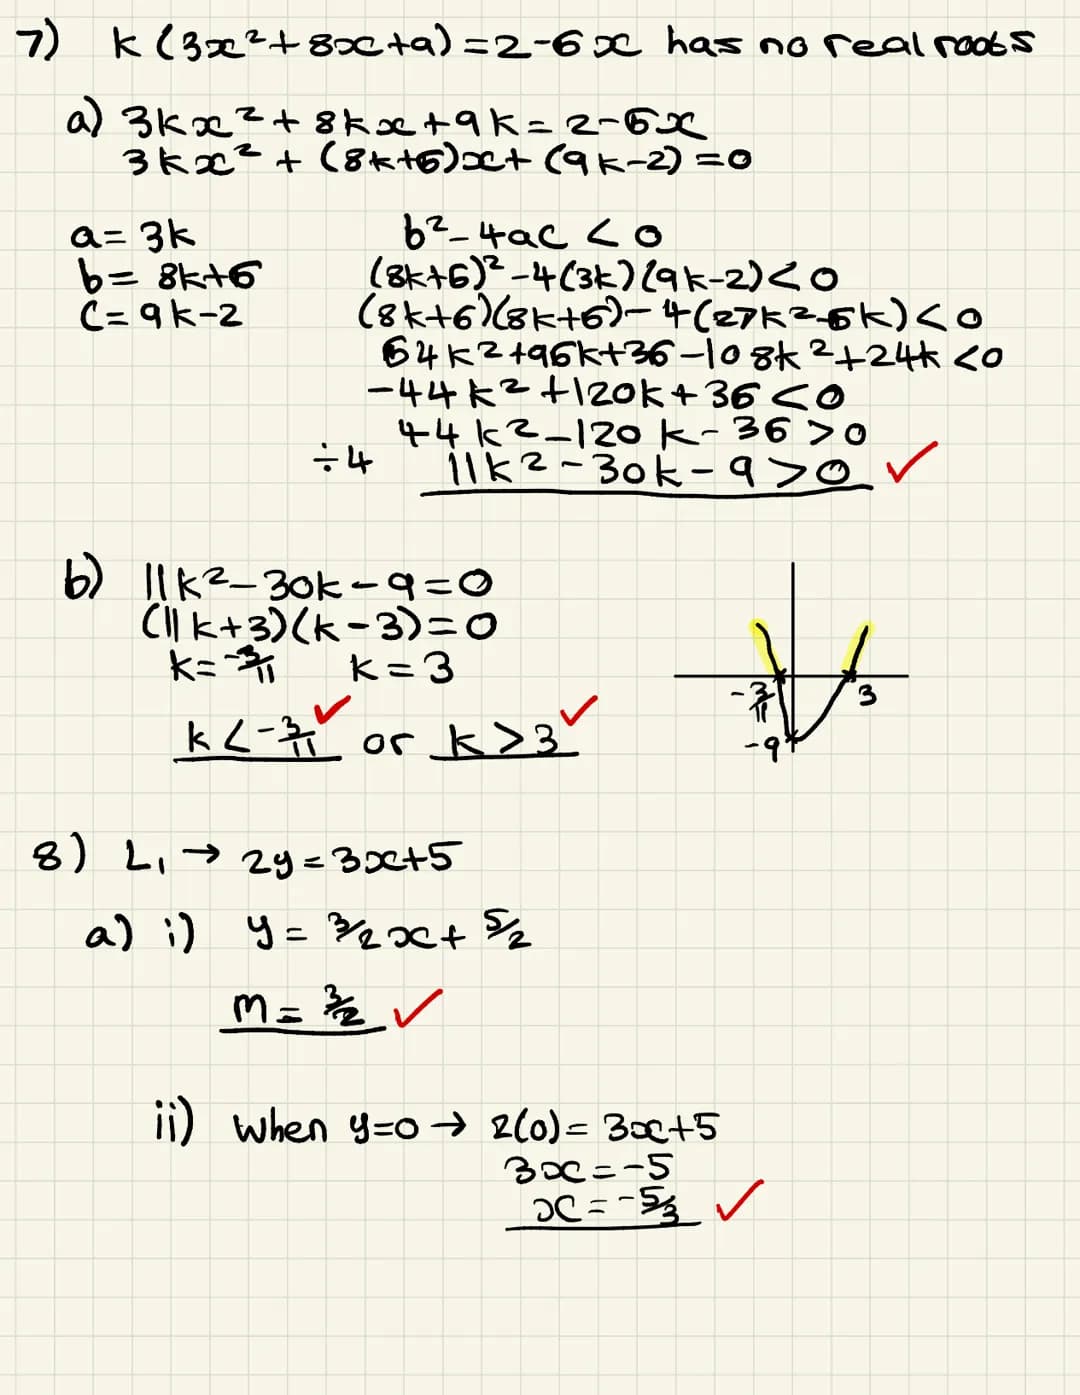 7) k(3x²+8x+9)=2-6x has no real roots
a) 3kx²+8kx+9k=2-6x
3kx²+(8k+6)x+(9k-2)=0
a=3k
b=8k+6
c=9k-2
b²-4ac<0
(8k+6)²-4(3k)(9k-2)<0
(8k+6)(8k+6)-4(27k²-6k)<0
64k²+96k+36-108k²+24k<0
-44k²+120k+36<0
44k²-120k-36>0
÷4 11k²-30k-9>0 ✓
b) 11k²-30k-9=0
(11k+3)(k-3)=0
k=-3/11 k=3
k<-3/11 ✓ or k>3 ✓
-3/11 3
-9
8) L₁→ 2y=3x+5
a) i) y=3/2x+5/2
m=3/2 ✓
ii) when y=0→ 2(0)=3x+5
3x=-5
x=-5/3 ✓